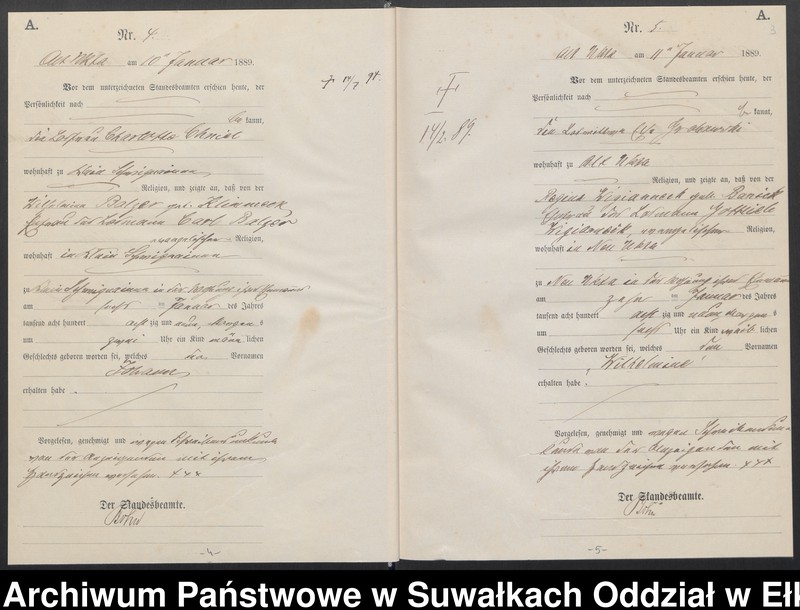 A.
Nr. 4.
Alt Ukta am 10ten Januar 1889.
Vor dem unterzeichneten Standesbeamten erschien heute, der
Persönlichkeit nach
be kannt,
die Losfrau Charlotte
wohnhaft zu Klein Schwignainen
Religion, und zeigte an, daß von der
Wilhelmine Balzer geb.
Ehefrau des Losmann Carl Balzer
evangelischer Religion,
wohnhaft in Klein Schwignainen
zu Klein Schwignainen in der Wohnung ihres Ehemanns
am sechs ten Januar des Jahres
tausend acht hundert acht zig und neun, Morgens
um zwei Uhr ein Kind männ lichen
Geschlechts geboren worden sei, welches den Vornamen
Johann
erhalten habe.
Vorgelesen, genehmigt und wegen Schreibensunkunde
von der Anzeigenden mit ihrem
Handzeichen versehen. + + +
Der Standesbeamte.
-4-
A.
3
Nr. 5.
Alt Ukta am 11ten Januar 1889.
Vor dem unterzeichneten Standesbeamten erschien heute, der
Persönlichkeit nach
be kannt,
die
wohnhaft zu Alt Ukta
Religion, und zeigte an, daß von der
Regine
Ehefrau des Losmann Gottlieb
evangelischer Religion,
wohnhaft in Neu Ukta
zu Neu Ukta in der Wohnung ihres Ehemanns
am zehn ten Januar des Jahres
tausend acht hundert acht zig und neun Morgens
um sechs Uhr ein Kind weib lichen
Geschlechts geboren worden sei, welches den Vornamen
"Wilhelmine"
erhalten habe.
Vorgelesen, genehmigt und wegen Schreibensun-
kunde von der Anzeigenden mit
ihrem Handzeichen versehen + + +
Der Standesbeamte.
-5-
+ 14/7 94.
+
14/2. 89.
Archiwum Państwowe w Suwałkach Oddział w Eł